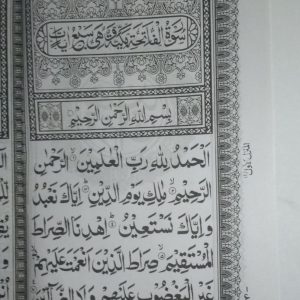 سورة الفاتحة مكية وهي سبع آيات
بسم الله الرحمن الرحيم
الحمد لله رب العلمين الرحمن
الرحيم ملك يوم الدين اياك نعبد
و اياك نستعين اهدنا الصراط
المستقيم صراط الذين انعمت عليهم
غير المغضوب عليهم ولا الضالين